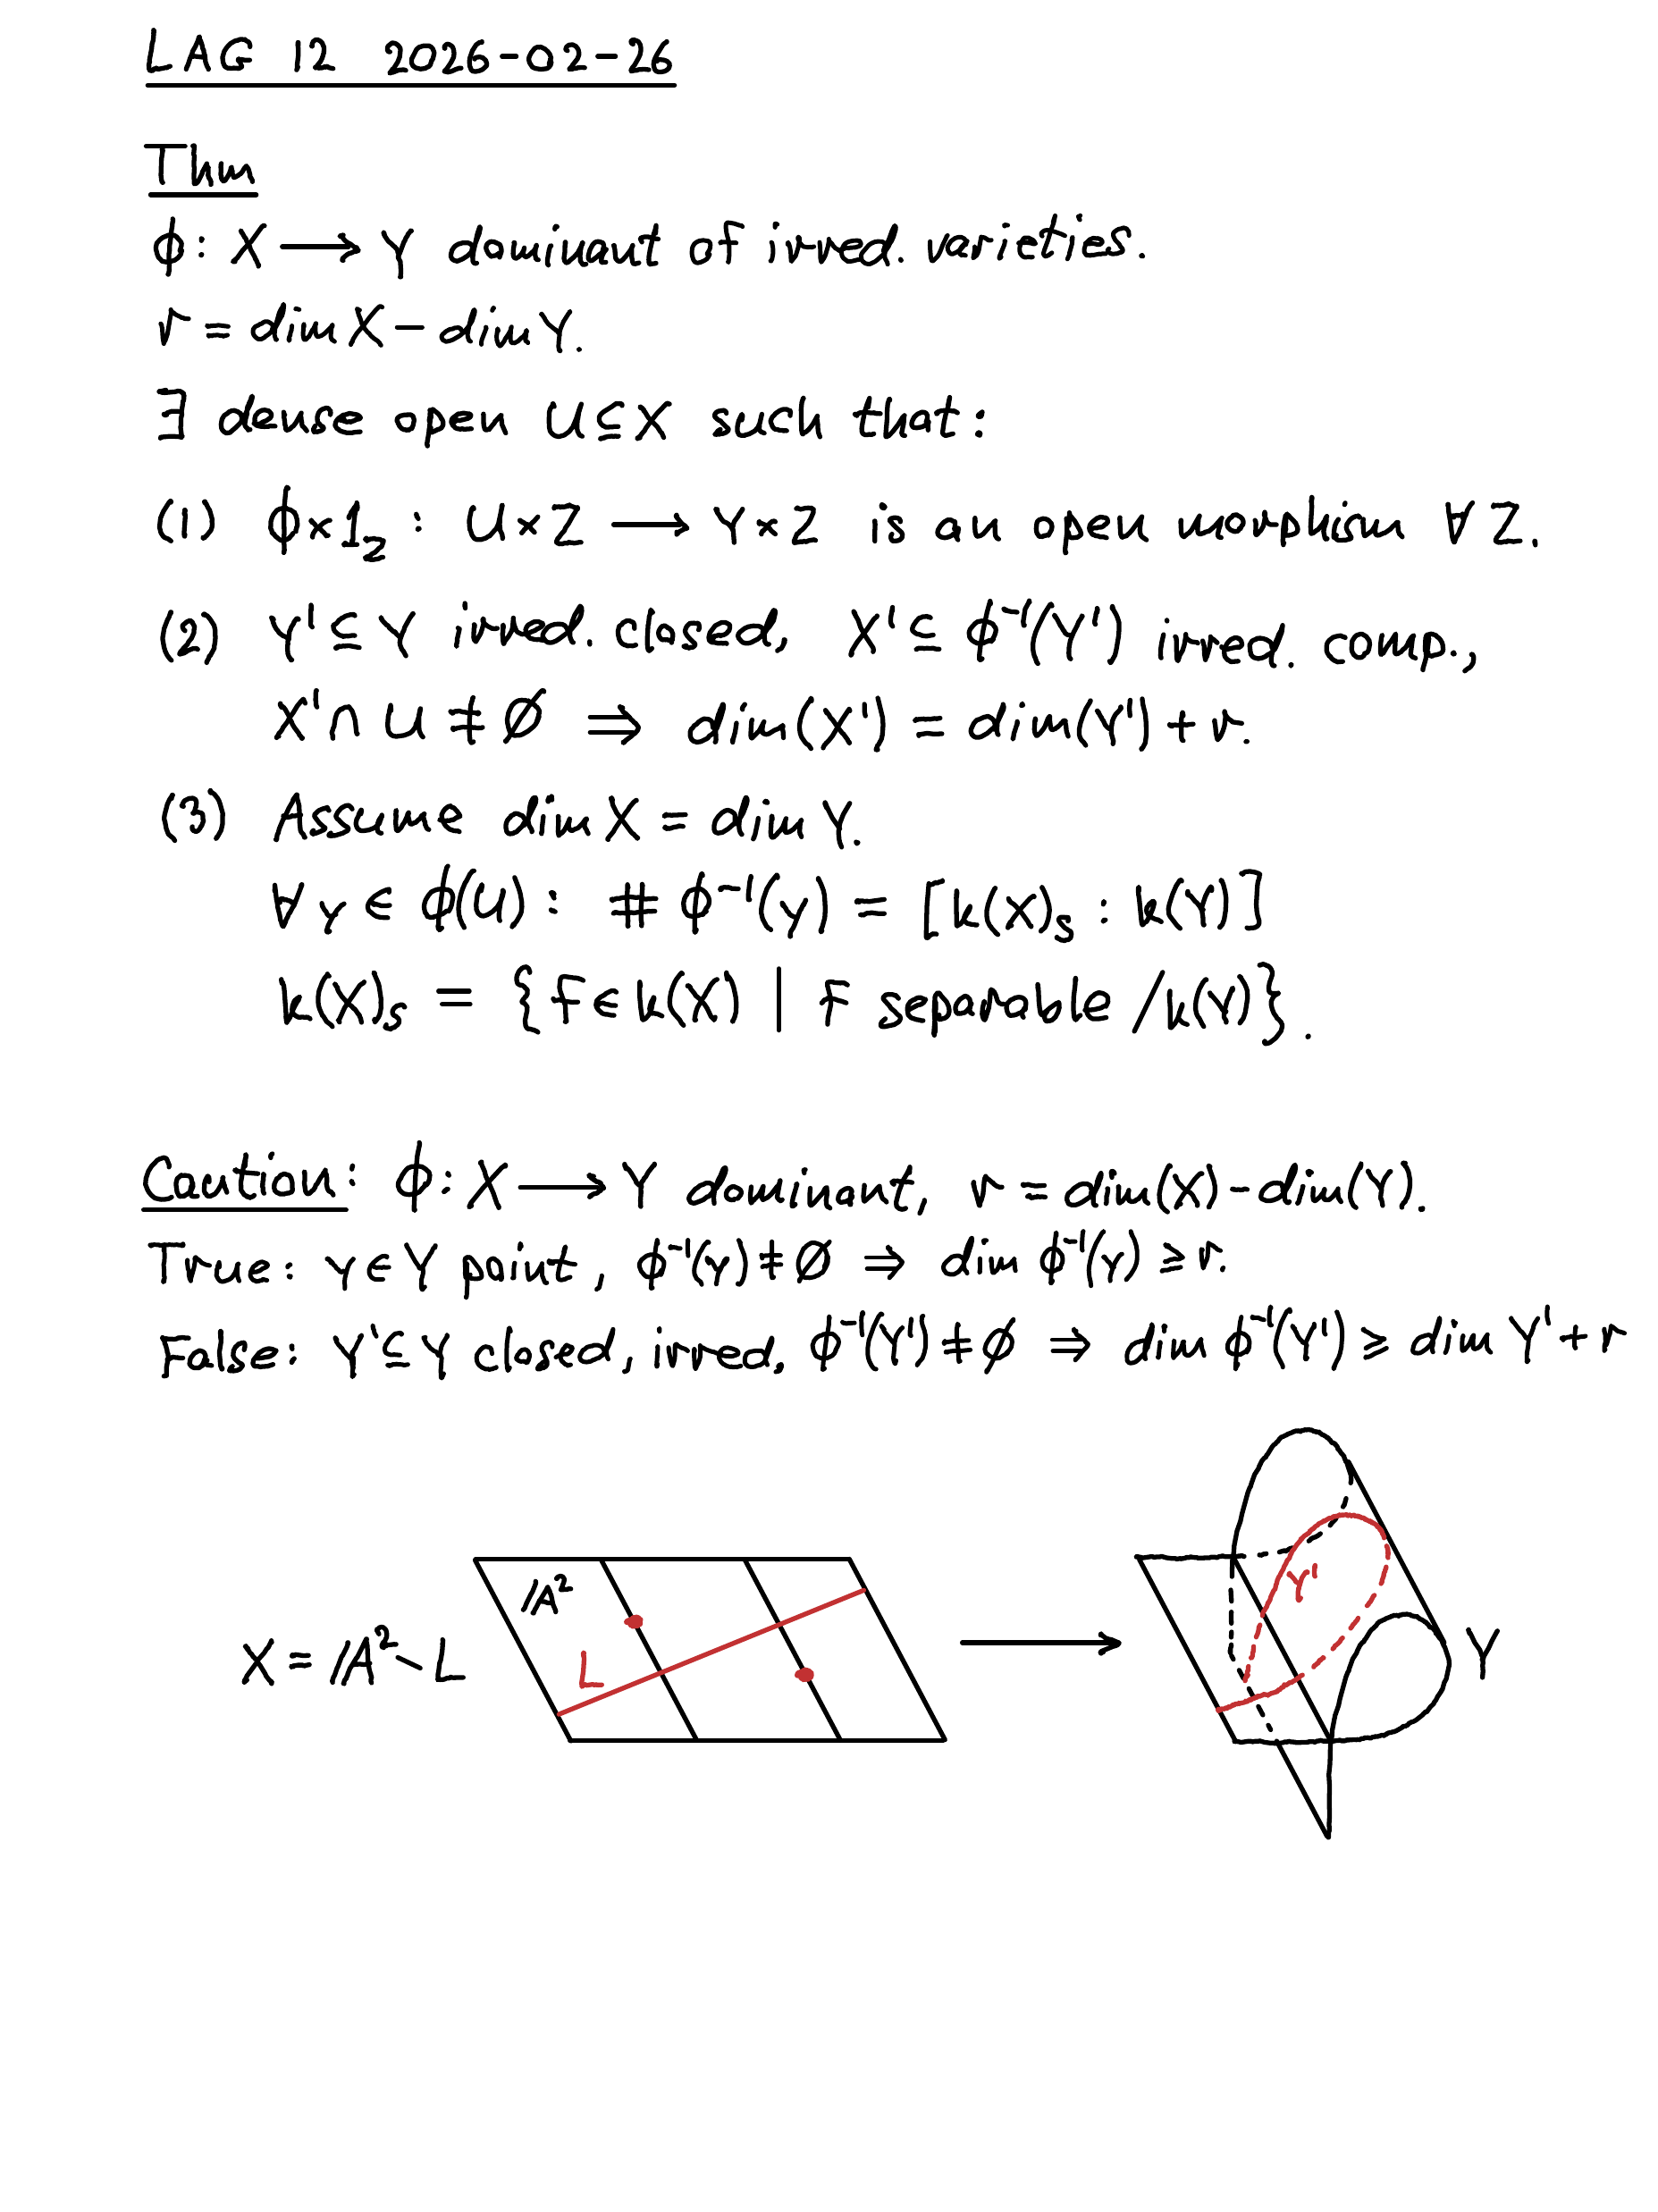 LAG 12 2026-02-26
Thm
ϕ: X ⟶ Y dominant of irred. varieties.
r = dim X − dim Y.
∃ dense open U ⊆ X such that:
(1) ϕ×1_Z : U×Z ⟶ Y×Z is an open morphism ∀ Z.
(2) Y' ⊆ Y irred. closed, X' ⊆ ϕ⁻¹(Y') irred. comp.,
X' ∩ U ≠ ∅ ⇒ dim(X') = dim(Y') + r.
(3) Assume dim X = dim Y.
∀ y ∈ ϕ(U) : # ϕ⁻¹(y) = [k(X)_s : k(Y)]
k(X)_s = {f ∈ k(X) | f separable / k(Y)}.
Caution: ϕ: X ⟶ Y dominant, r = dim(X) − dim(Y).
True: y ∈ Y point, ϕ⁻¹(y) ≠ ∅ ⇒ dim ϕ⁻¹(y) ≥ r.
False: Y' ⊆ Y closed, irred, ϕ⁻¹(Y') ≠ ∅ ⇒ dim ϕ⁻¹(Y') ≥ dim Y' + r
X = 𝔸² ∖ L
𝔸²
L
Y'
Y